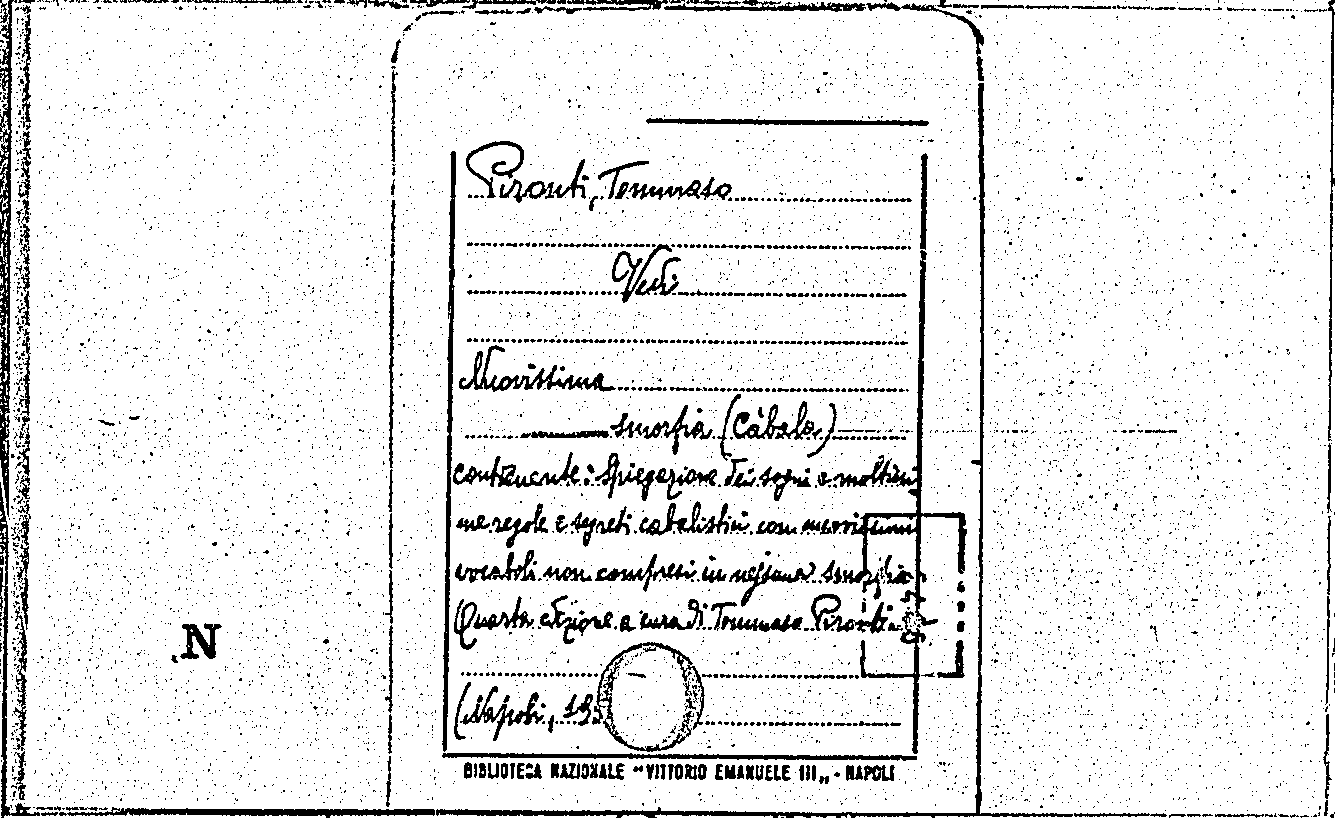 Pironti, Tommaso
Vedi
Nuovissima
smorfia (Càbala)
contenente: Spiegazione dei sogni e moltissi
me regole e segreti cabalistici con nuovissimi
vocaboli non compresi in nessuna smorfia.
Quarta edizione a cura di Tommaso Pironti
N
(Napoli, 19
BIBLIOTECA NAZIONALE "VITTORIO EMANUELE III„ - NAPOLI